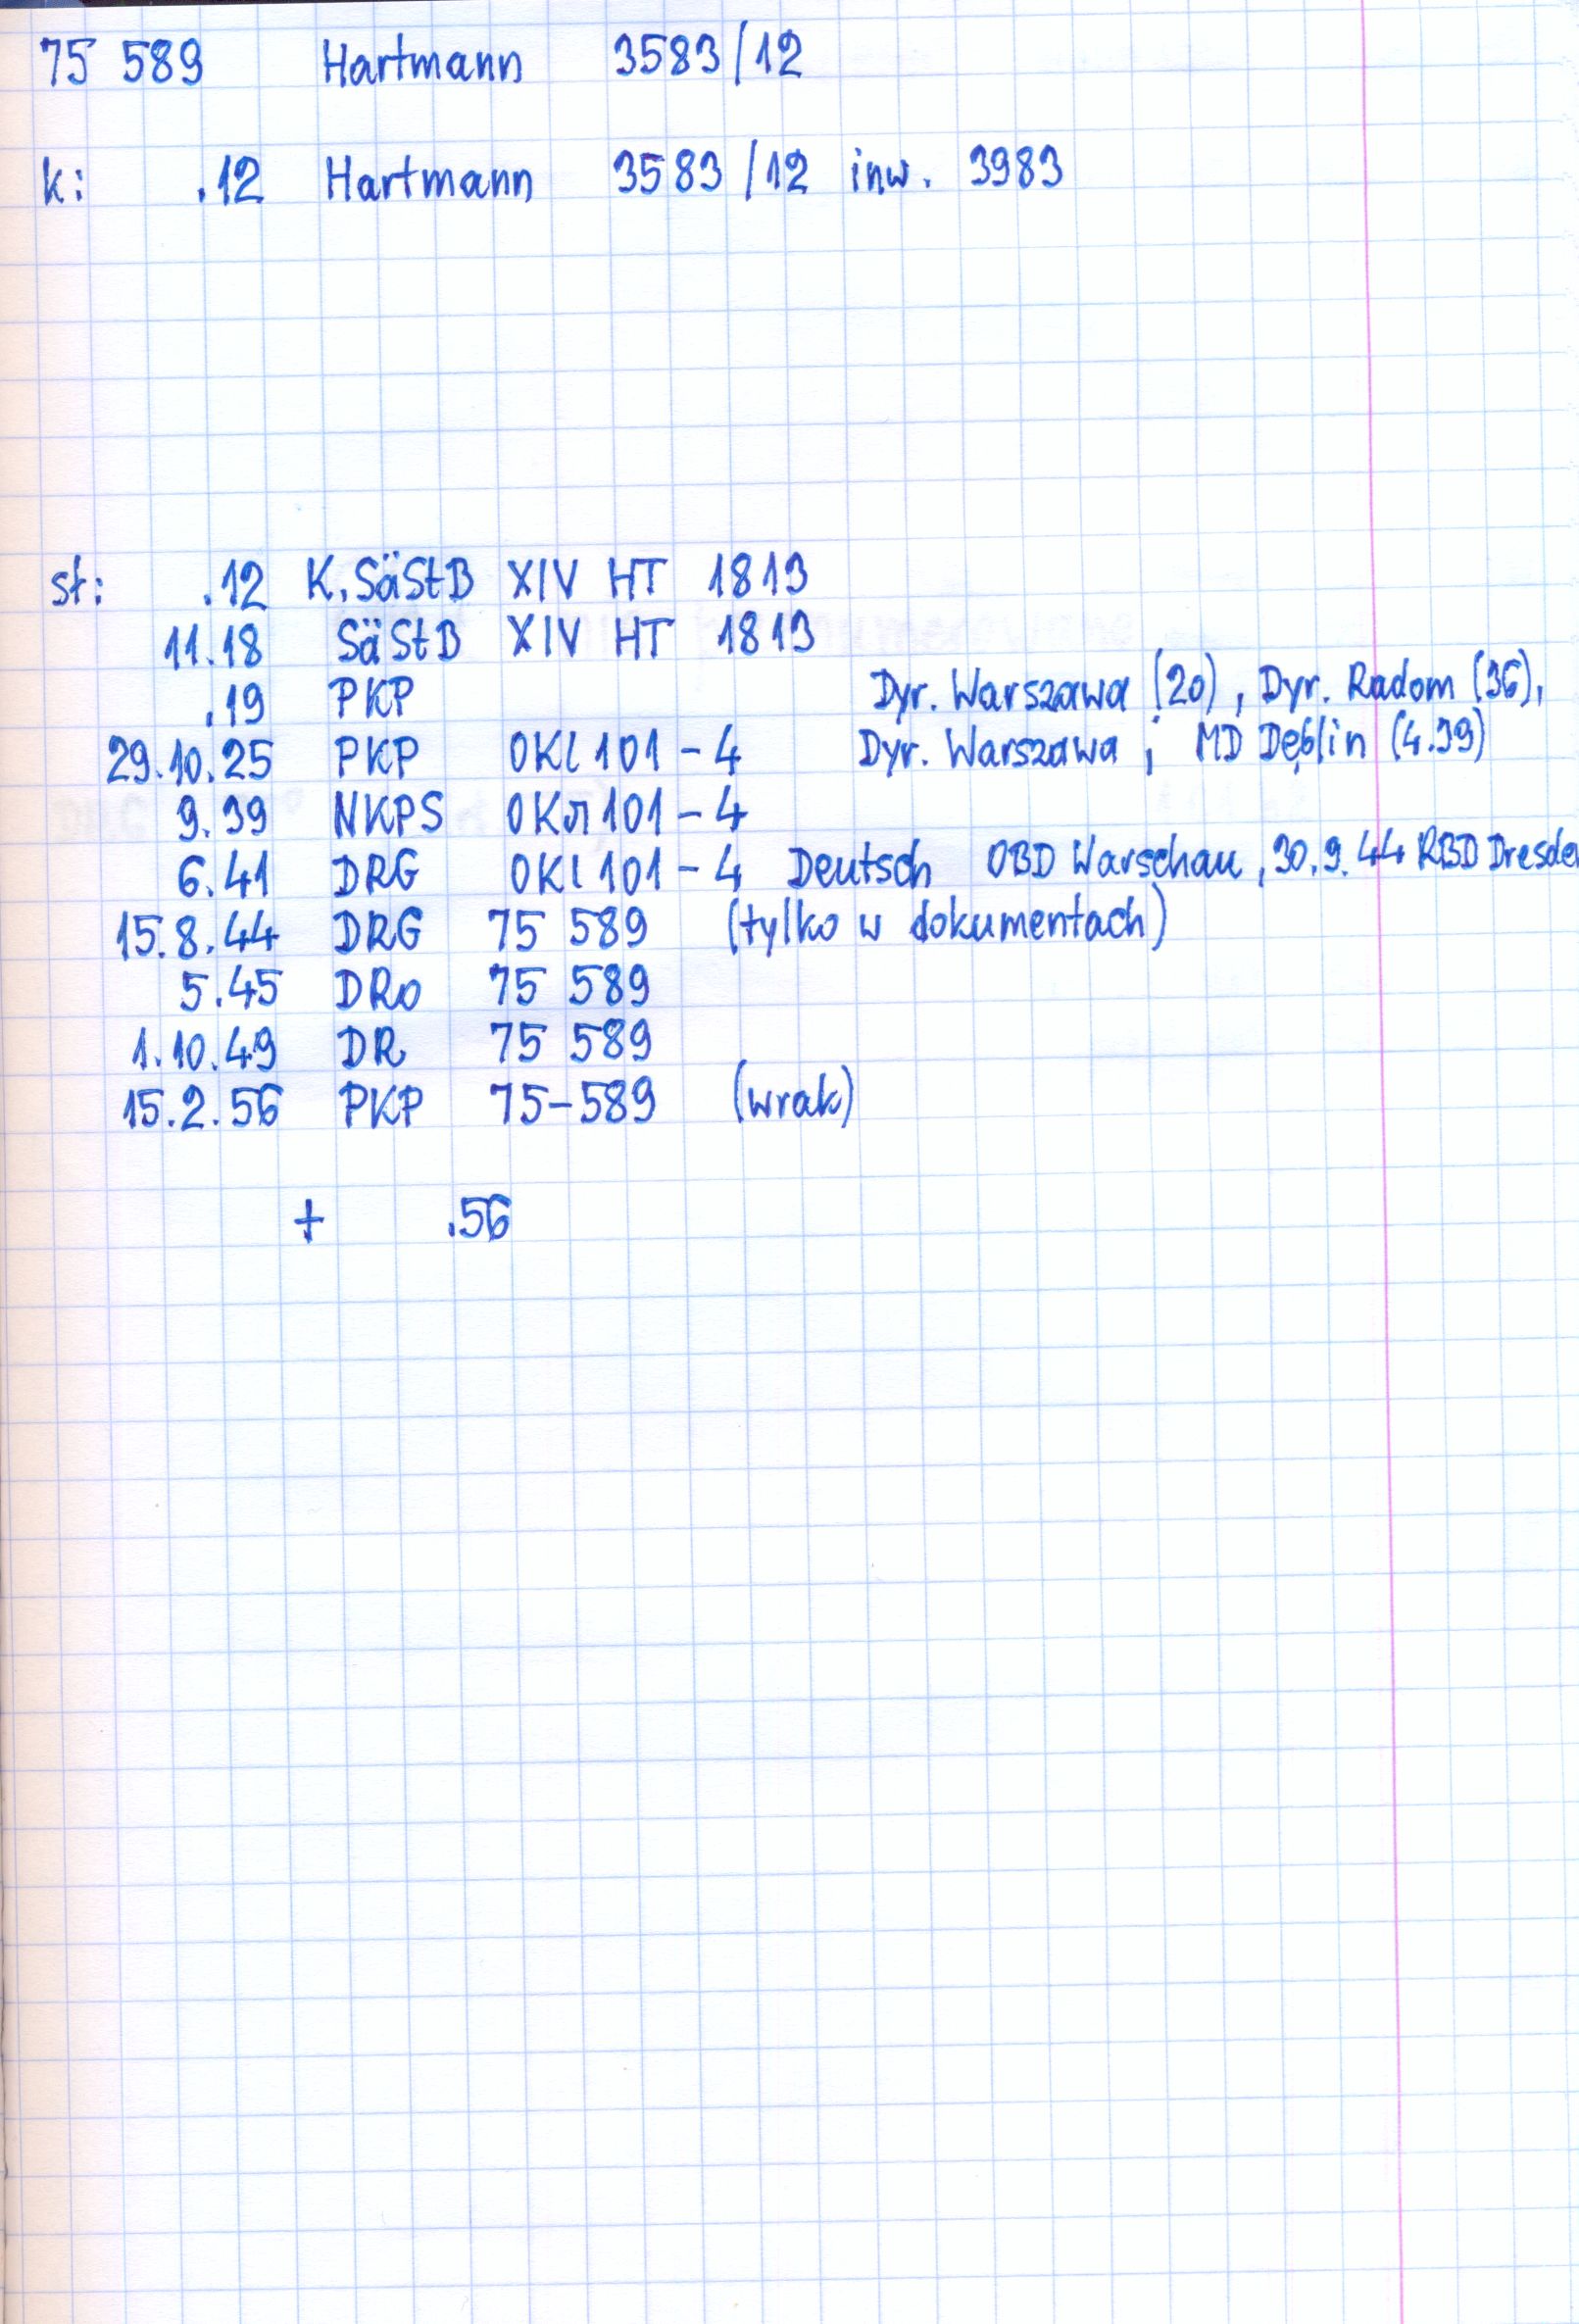 75 589 Hartmann 3583/12
k: .12 Hartmann 3583/12 inw. 3983
st: .12 K.SäStB XIV HT 1813
11.18 SäStB XIV HT 1813
.19 PKP Dyr. Warszawa (20), Dyr. Radom (36),
29.10.25 PKP OKl 101-4 Dyr. Warszawa; MD Dęblin (4.39)
9.39 NKPS OKл 101-4
6.41 DRG OKl 101-4 Deutsch OBD Warschau, 30.9.44 RBD Dresde
15.8.44 DRG 75 589 (tylko w dokumentach)
5.45 DRo 75 589
1.10.49 DR 75 589
15.2.56 PKP 75-589 (wrak)
+ .56